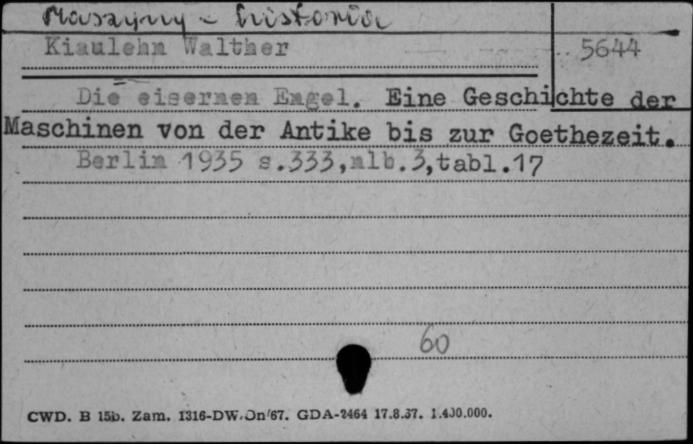 Maszyny - historia
Kiaulehn Walther 5644
Die eisernen Engel. Eine Geschichte der
Maschinen von der Antike bis zur Goethezeit.
Berlin 1935 s.333,nlb.3,tabl.17
60
CWD. B 15b. Zam. 1316-DW.Dn/67. GDA-2464 17.8.67. 1.400.000.